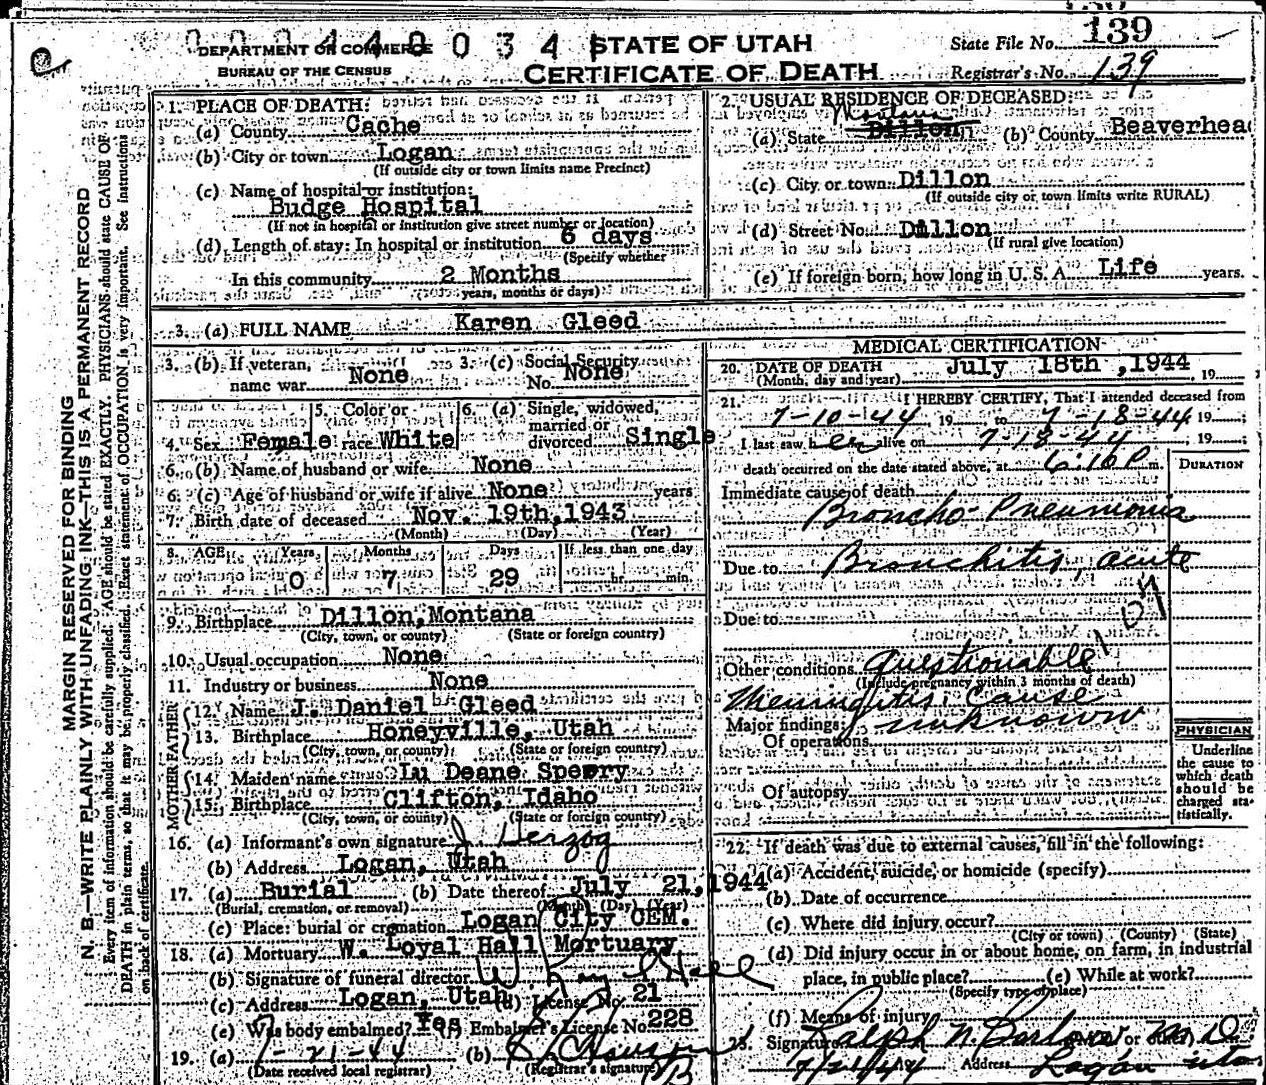 0 0 3 4 4 0 0 3 4
DEPARTMENT OF COMMERCE
BUREAU OF THE CENSUS
STATE OF UTAH
CERTIFICATE OF DEATH
State File No. 139
Registrar's No. 139
MARGIN RESERVED FOR BINDING
N. B.—WRITE PLAINLY WITH UNFADING INK—THIS IS A PERMANENT RECORD
Every item of information should be carefully supplied. AGE should be stated EXACTLY. PHYSICIANS should state CAUSE OF
DEATH in plain terms, so that it may be properly classified. Exact statement of OCCUPATION is very important. See instructions
on back of certificate.
1. PLACE OF DEATH:
(a) County Cache
(b) City or town Logan
(If outside city or town limits name Precinct)
(c) Name of hospital or institution:
Budge Hospital
(If not in hospital or institution give street number or location)
(d) Length of stay: In hospital or institution 6 days
(Specify whether
In this community 2 Months
years, months or days)
2. USUAL RESIDENCE OF DECEASED:
(a) State Dillon Montana (b) County Beaverhea
(c) City or town Dillon
(If outside city or town limits write RURAL)
(d) Street No. Dillon
(If rural give location)
(e) If foreign born, how long in U. S. A. Life years.
3. (a) FULL NAME Karen Gleed
3. (b) If veteran, name war None
3. (c) Social Security No. None
4. Sex Female
5. Color or race White
6. (a) Single, widowed, married or divorced Single
6. (b) Name of husband or wife None
6. (c) Age of husband or wife if alive None years
7. Birth date of deceased Nov. 19th, 1943
(Month) (Day) (Year)
8. AGE Years Months Days If less than one day
0 7 29 hr. min.
9. Birthplace Dillon, Montana
(City, town, or county) (State or foreign country)
10. Usual occupation None
11. Industry or business None
FATHER
12. Name J. Daniel Gleed
13. Birthplace Honeyville, Utah
(City, town, or county) (State or foreign country)
MOTHER
14. Maiden name Lu Deane Sperry
15. Birthplace Clifton, Idaho
(City, town, or county) (State or foreign country)
16. (a) Informant's own signature J. Herzog
(b) Address Logan, Utah
17. (a) Burial (b) Date thereof July 21, 1944
(Burial, cremation, or removal) (Month) (Day) (Year)
(c) Place: burial or cremation Logan City CEM.
18. (a) Mortuary W. Loyal Hall Mortuary
(b) Signature of funeral director W Loyal Hall
(c) Address Logan, Utah (d) License No. 21
(e) Was body embalmed? Yes (f) Embalmer's License No. 228
19. (a) 7-21-44 (b)
(Date received local registrar) (Registrar's signature)
MEDICAL CERTIFICATION
20. DATE OF DEATH July 18th, 1944, 19
(Month, day and year)
21. I HEREBY CERTIFY, That I attended deceased from
7-10-44, 19 to 7-18-44 19
I last saw her alive on 7-18-44, 19
death occurred on the date stated above, at 6:10 P m.
DURATION
Immediate cause of death
Broncho-Pneumonia
Due to Bronchitis, acute
Due to
107
Other conditions Questionable
(Include pregnancy within 3 months of death)
Meningitis, cause
unknown
Major findings:
Of operations
Of autopsy
PHYSICIAN
Underline
the cause to
which death
should be
charged sta-
tistically.
22. If death was due to external causes, fill in the following:
(a) Accident, suicide, or homicide (specify)
(b) Date of occurrence
(c) Where did injury occur?
(City or town) (County) (State)
(d) Did injury occur in or about home, on farm, in industrial
place, in public place? (e) While at work?
(Specify type of place)
(f) Means of injury
23. Signature Ralph N. Barlow M D or other)
7/21/44 Address Logan Utah